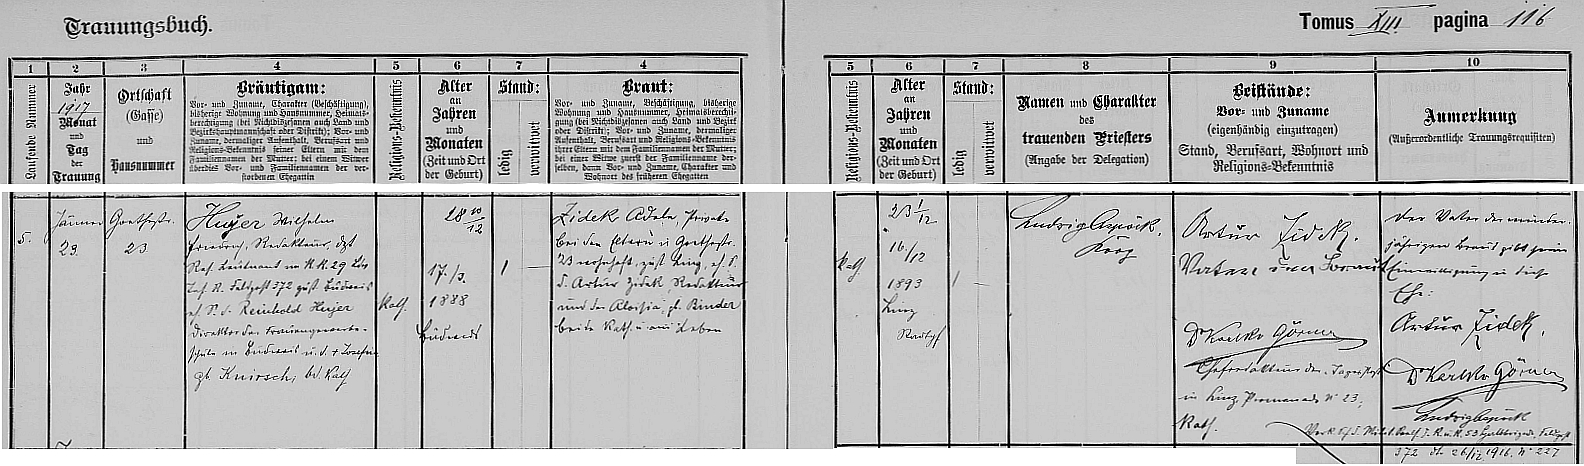 Trauungsbuch.
Tomus XIII pagina 116
1 2 3 4 5 6 7 4 5 6 7 8 9 10
Laufende Nummer
Jahr
1917
Monat
und
Tag
der
Trauung
Ortschaft
(Gasse)
und
Hausnummer
Bräutigam:
Vor- und Zuname, Charakter (Beschäftigung),
bisherige Wohnung und Hausnummer, Heimats-
berechtigung (bei Nichtbößeren auch Land und
Bezirkshauptmannschaft oder Distrikt); Vor- und
Zuname, dermaliger Aufenthalt, Berufsart und
Religions-Bekenntnis seiner Eltern mit dem
Familiennamen der Mutter; bei einem Witwer
überdies Vor- und Familienname der ver-
storbenen Ehegattin
Religions-Bekenntnis
Alter
an
Jahren
und
Monaten
(Zeit und Ort
der Geburt)
Stand:
ledig
verwitwet
Braut:
Vor- und Zuname, Beschäftigung, bisherige
Wohnung und Hausnummer, Heimatsberechti-
gung (bei auch Land und Bezirk
oder Distrikt); Vor- und Zuname, dermaliger
Aufenthalt, Berufsart und Religions-Bekenntnis
ihrer Eltern mit dem Familiennamen der Mutter;
bei einer Witwe zuerst der Familienname der-
selben, dann Vor- und Zuname, Charakter und
Wohnort des früheren Ehegatten
Religions-Bekenntnis
Alter
an
Jahren
und
Monaten
(Zeit und Ort
der Geburt)
Stand:
ledig
verwitwet
Namen und Charakter
des
trauenden Priesters
(Angabe der Delegation)
Beistände:
Vor- und Zuname
(eigenhändig einzutragen)
Stand, Berufsart, Wohnort und
Religions-Bekenntnis
Anmerkung
(Außerordentliche Trauungsrequisiten)
5.
Jänner
23.
Goethestr.
23
Hujer Wilhelm
Friedrich, Redakteur, dzt
Res. Leutnant im K.K. 29
Feldpost 372 zust. Budweis
eh. S. d. Reinhold Hujer
Direktor der Frauengewerbe-
schule in Budweis u. d. + Josefine
gb. Knirsch; bd. Kath
Kath.
28 10/12
17./3.
1888
Budweis
1 —
Zidek Adele, Private
bei den Eltern in Goethestr.
23 wohnhaft, zust. Linz, eh. T.
d. Artur Zidek, Redakteur
und der Aloisia, gb. Binder
beide Kath. u. am Leben
Kath
23 1/12
16./12
1893
Linz
Stadtpf
1 —
Ludwig Aspöck,
Koop
Artur Zidek.
Vater der Braut
Dr Karl v Görner
Chefredakteur der "Tagespost"
in Linz, Promenade No 23,
Kath.
Der Vater der minder-
jährigen Braut gibt seine
Einwilligung in diese
Ehe:
Artur Zidek.
Dr Karl v Görner
Ludwig Aspöck
372 26/12 1916. No 227